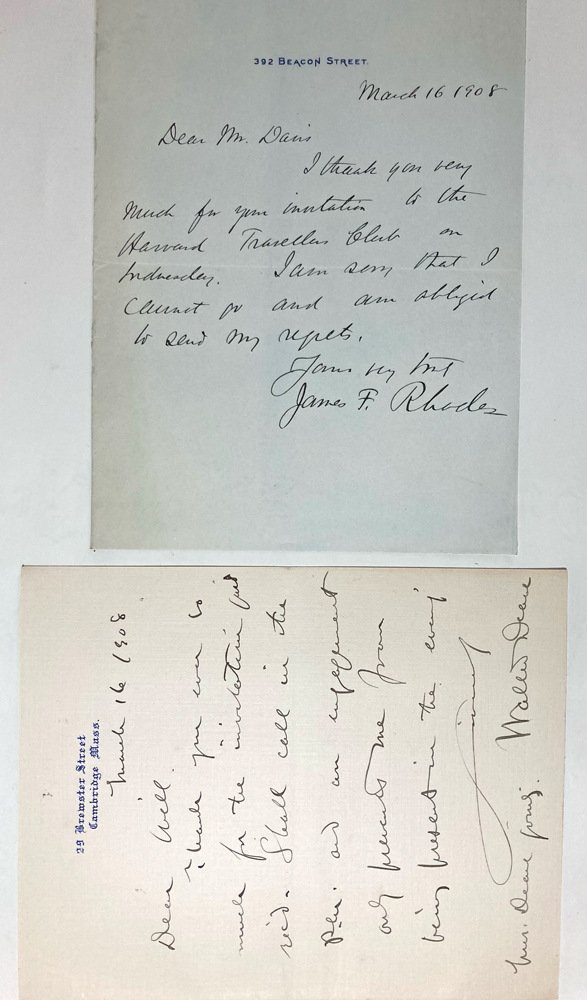 392 BEACON STREET.
March 16 1908
Dear Mr. Davis
I thank you very
much for your invitation to the
Harvard Travellers Club on
Wednesday. I am sorry that I
cannot go and am obliged
to send my regrets.
Yours very
James F. Rhodes
29 Brewster Street
Cambridge Mass.
March 16 1908
Dear Will.
Thank you ever so
much for the invitation just
rec'd. Shall call in the
P.M. and an engagement
only prevents me from
being present in the eveng
Walter Deane
Mrs. Deane going.